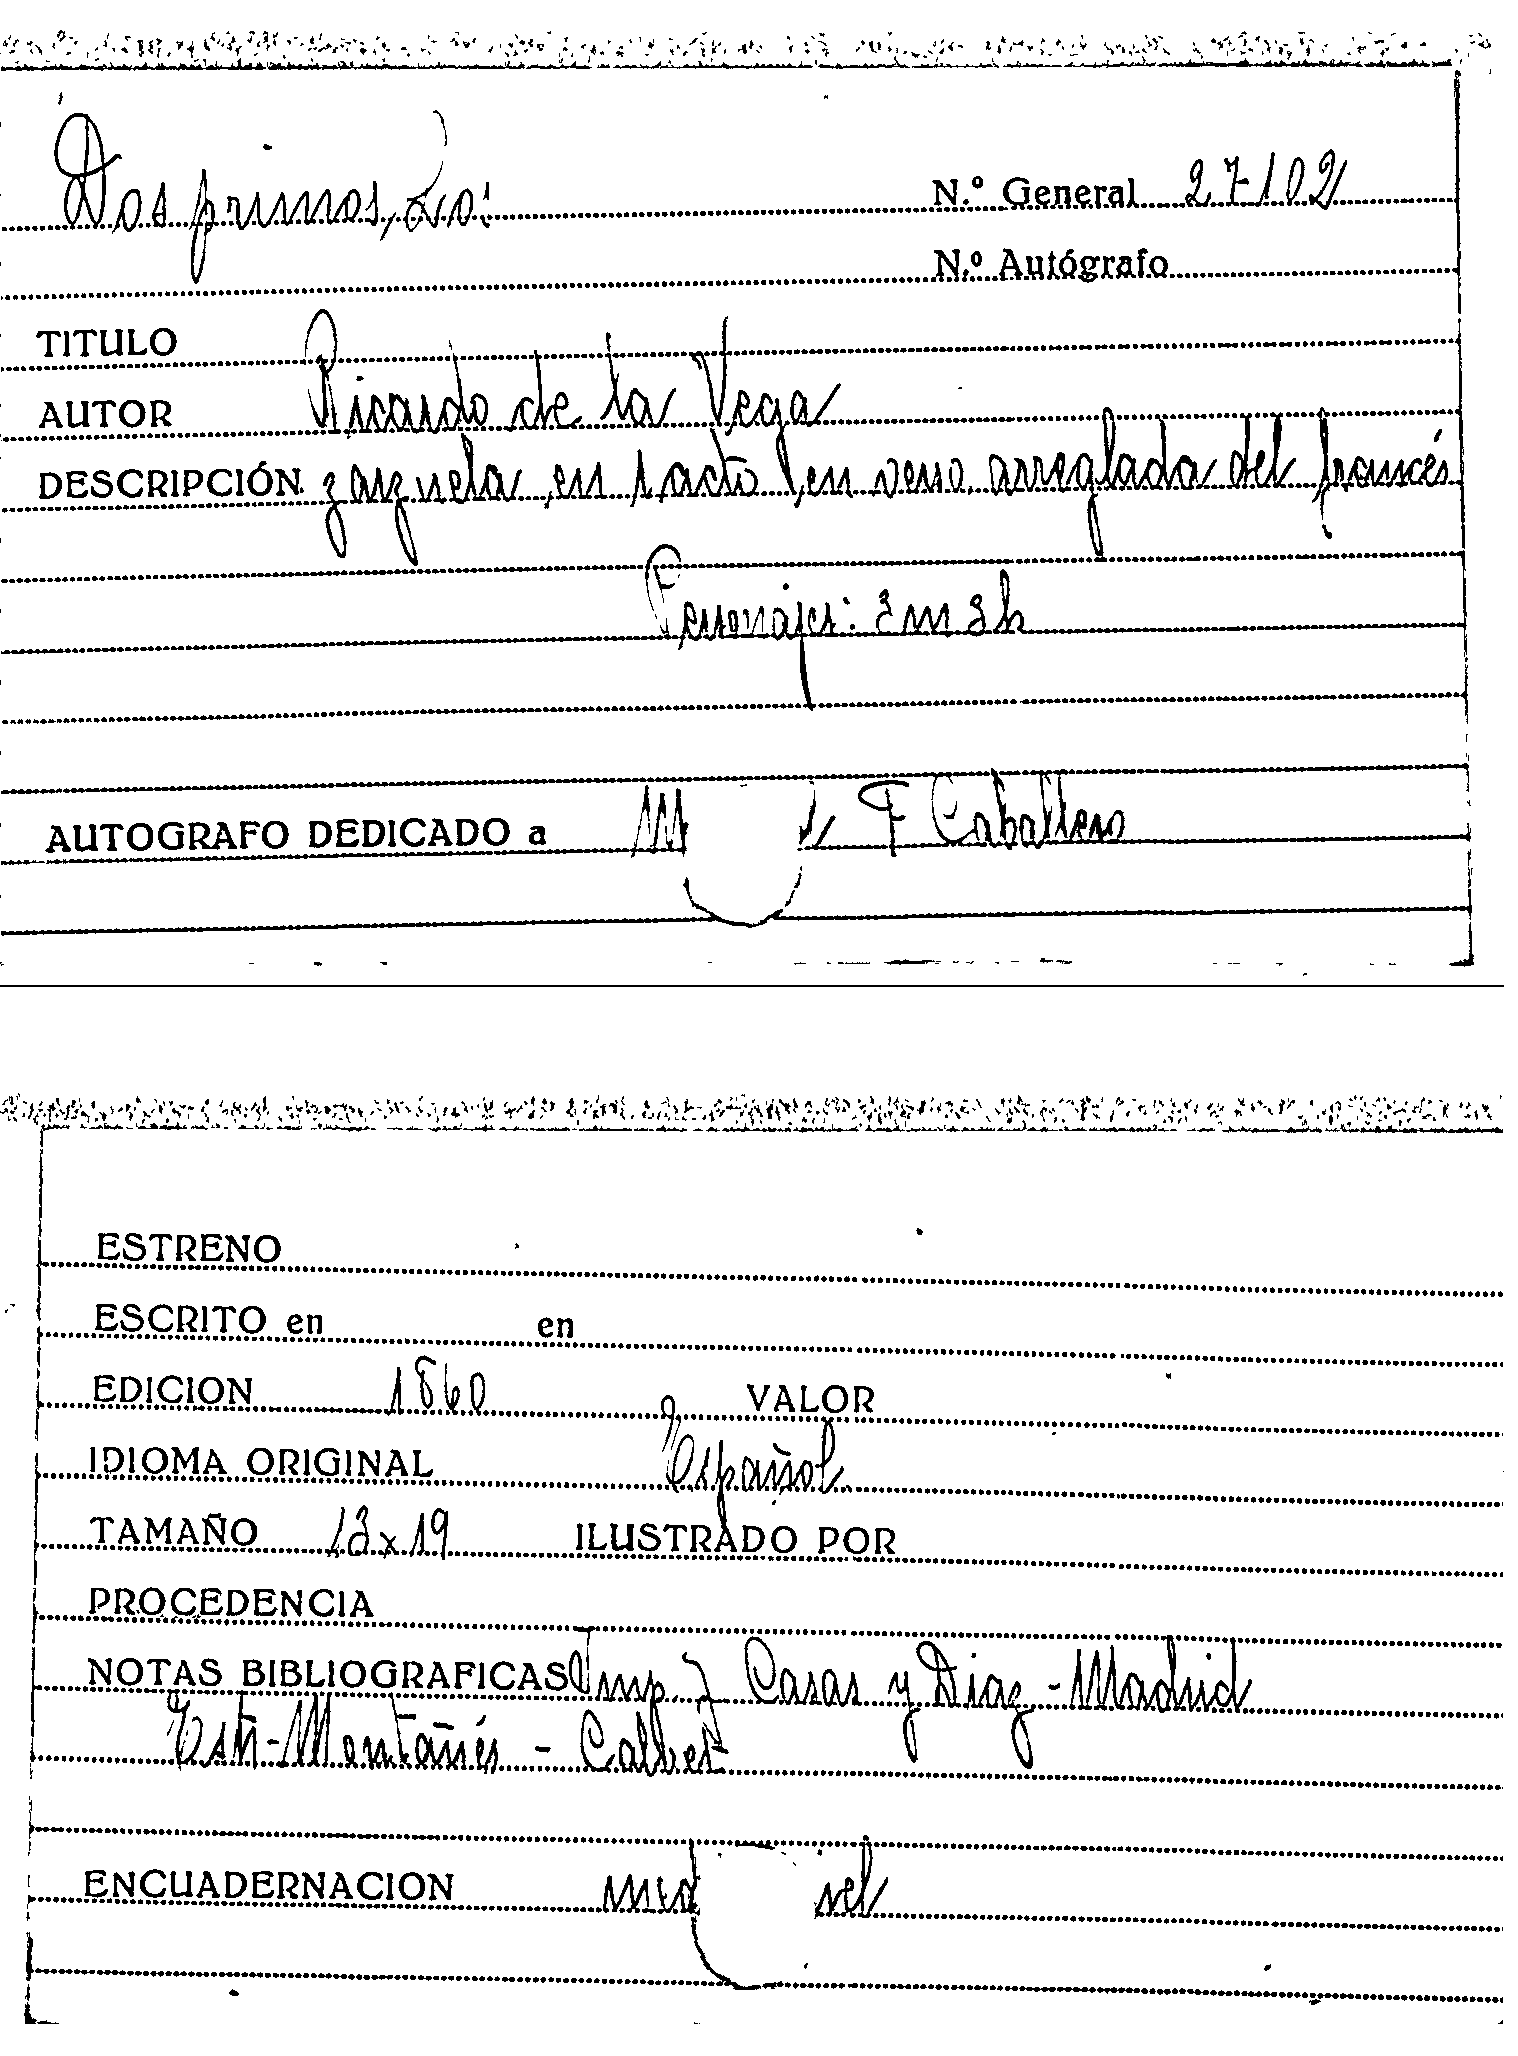 Dos primos, Los
N.º General 27102
N.º Autógrafo
TITULO
AUTOR Ricardo de la Vega
DESCRIPCIÓN zarzuela en 1 acto y en verso arreglada del francés
Personajes: 3 m 3 h
AUTOGRAFO DEDICADO a F Caballero
ESTRENO
ESCRITO en en
EDICION 1860 VALOR
IDIOMA ORIGINAL Español
TAMAÑO 13 x 19 ILUSTRADO POR
PROCEDENCIA
NOTAS BIBLIOGRAFICAS Imp J Casas y Diaz - Madrid
Montañés - Calbet
ENCUADERNACION